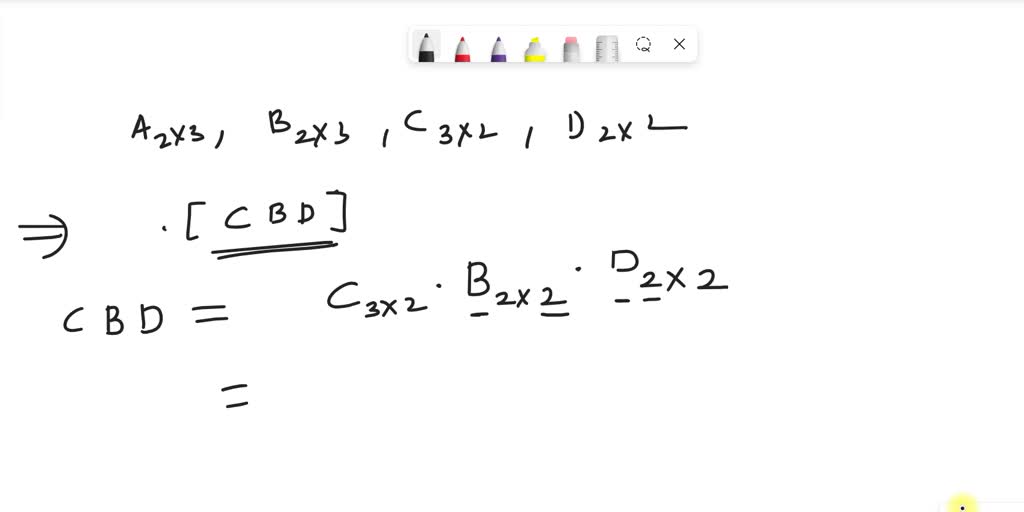 A2×3, B2×3, C3×2, D2×2
⇒ ·[CBD]
CBD = C3×2 · B2×2 · D2×2
=